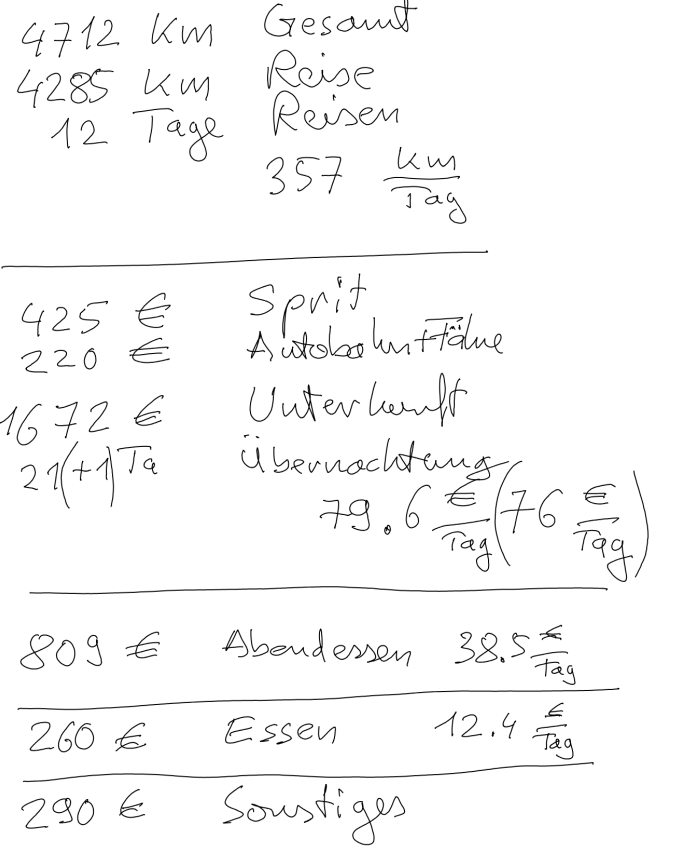 4712 Km Gesamt
4285 Km Reise
12 Tage Reisen
357 km/Tag
425 € Sprit
220 € Autobahn + Fähre
1672 € Unterkunft
21(+1) Ta Übernachtung
79.6 €/Tag (76 €/Tag)
809 € Abendessen 38.5 €/Tag
260 € Essen 12.4 €/Tag
290 € Sonstiges